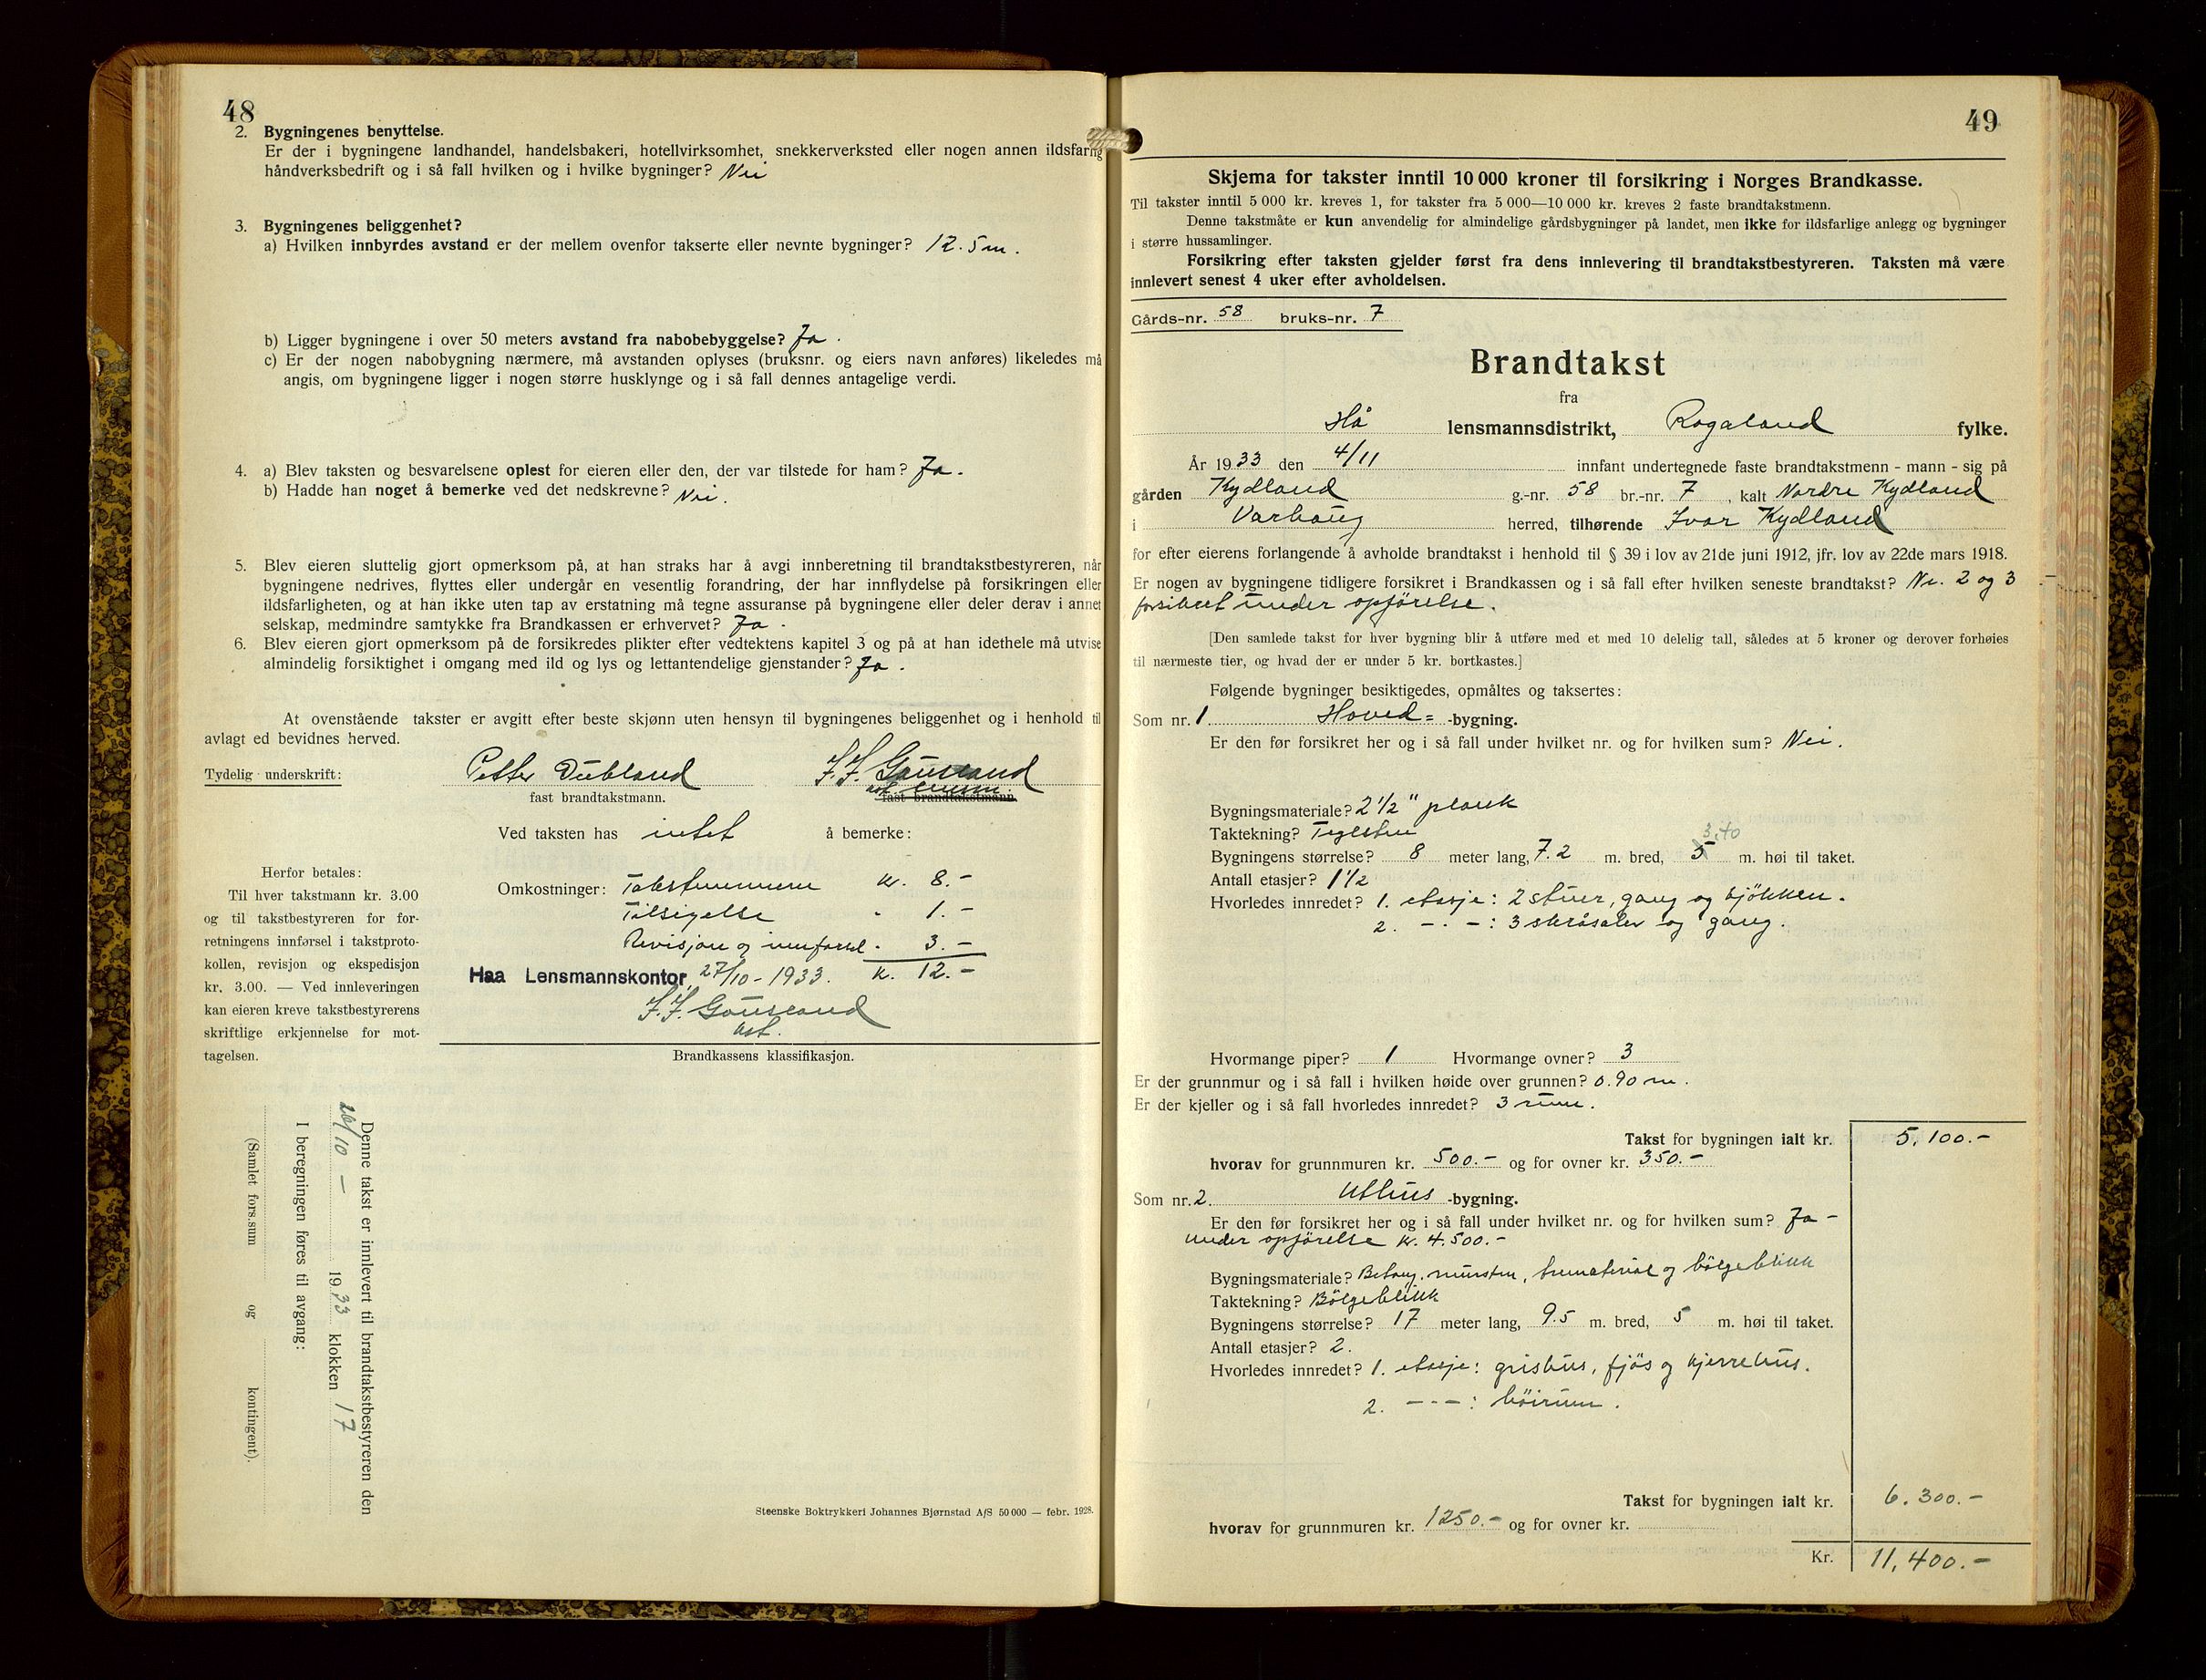 48
2. Bygningenes benyttelse.
Er der i bygningene landhandel, handelsbakeri, hotellvirksomhet, snekkerverksted eller nogen annen ildsfarlig
håndverksbedrift og i så fall hvilken og i hvilke bygninger? Nei
3. Bygningenes beliggenhet?
a) Hvilken innbyrdes avstand er der mellem ovenfor takserte eller nevnte bygninger? 12.5 m.
b) Ligger bygningene i over 50 meters avstand fra nabobebyggelse? Ja.
c) Er der nogen nabobygning nærmere, må avstanden oplyses (bruksnr. og eiers navn anføres) likeledes må
angis, om bygningene ligger i nogen større husklynge og i så fall dennes antagelige verdi.
4. a) Blev taksten og besvarelsene oplest for eieren eller den, der var tilstede for ham? Ja.
b) Hadde han noget å bemerke ved det nedskrevne? Nei.
5. Blev eieren sluttelig gjort opmerksom på, at han straks har å avgi innberetning til brandtakstbestyreren, når
bygningene nedrives, flyttes eller undergår en vesentlig forandring, der har innflydelse på forsikringen eller
ildsfarligheten, og at han ikke uten tap av erstatning må tegne assuranse på bygningene eller deler derav i annet
selskap, medmindre samtykke fra Brandkassen er erhvervet? Ja.
6. Blev eieren gjort opmerksom på de forsikredes plikter efter vedtektens kapitel 3 og på at han idethele må utvise
almindelig forsiktighet i omgang med ild og lys og lettantendelige gjenstander? Ja.
At ovenstående takster er avgitt efter beste skjønn uten hensyn til bygningenes beliggenhet og i henhold til
avlagt ed bevidnes herved.
Tydelig underskrift: Petter Dubland J. J. Gausland
ast.
fast brandtakstmann. fast brandtakstmann
Ved taksten has intet å bemerke:
Herfor betales:
Til hver takstmann kr. 3.00
og til takstbestyreren for for-
retningens innførsel i takstproto-
kollen, revisjon og ekspedisjon
kr. 3.00. — Ved innleveringen
kan eieren kreve takstbestyrerens
skriftlige erkjennelse for mot-
tagelsen.
Omkostninger: Takstmennene kr. 8.-
Tilsigelse " 1.-
Revisjon og innførsel " 3.-
Haa Lensmannskontor, 27/10-1933. kr. 12.-
J. J. Gausland
ast.
Brandkassens klassifikasjon.
Denne takst er innlevert til brandtakstbestyreren den
26/10 — 1933 klokken 17
I beregningen føres til avgang:
(Samlet fors.sum og kontingent).
Steenske Boktrykkeri Johannes Bjørnstad A/S 50 000 — febr. 1928.
49
Skjema for takster inntil 10 000 kroner til forsikring i Norges Brandkasse.
Til takster inntil 5 000 kr. kreves 1, for takster fra 5 000—10 000 kr. kreves 2 faste brandtakstmenn.
Denne takstmåte er kun anvendelig for almindelige gårdsbygninger på landet, men ikke for ildsfarlige anlegg og bygninger
i større hussamlinger.
Forsikring efter taksten gjelder først fra dens innlevering til brandtakstbestyreren. Taksten må være
innlevert senest 4 uker efter avholdelsen.
Gårds-nr. 58 bruks-nr. 7
Brandtakst
fra
Hå lensmannsdistrikt, Rogaland fylke.
År 1933 den 4/11 innfant undertegnede faste brandtakstmenn - mann - sig på
gården Kydland g.-nr. 58 br.-nr. 7, kalt Nordre Kydland
i Varhaug herred, tilhørende Ivar Kydland
for efter eierens forlangende å avholde brandtakst i henhold til § 39 i lov av 21de juni 1912, jfr. lov av 22de mars 1918.
Er nogen av bygningene tidligere forsikret i Brandkassen og i så fall efter hvilken seneste brandtakst? Nr. 2 og 3
forsikret under opførelse.
[Den samlede takst for hver bygning blir å utføre med et med 10 delelig tall, således at 5 kroner og derover forhøies
til nærmeste tier, og hvad der er under 5 kr. bortkastes.]
Følgende bygninger besiktigedes, opmåltes og taksertes:
Som nr. 1 Hoved= -bygning.
Er den før forsikret her og i så fall under hvilket nr. og for hvilken sum? Nei.
Bygningsmateriale? 2 1/2" plank
Taktekning? Teglsten
3.40
Bygningens størrelse? 8 meter lang, 7.2 m. bred, 5 m. høi til taket.
Antall etasjer? 1 1/2
Hvorledes innredet? 1. etasje: 2 stuer, gang og kjökken.
2. -.-: 3 skråsaler og gang.
Hvormange piper? 1 Hvormange ovner? 3
Er der grunnmur og i så fall i hvilken høide over grunnen? 0.90 m.
Er der kjeller og i så fall hvorledes innredet? 3 rum.
Takst for bygningen ialt kr. 5.100.-
hvorav for grunnmuren kr. 500.- og for ovner kr. 350.-
Som nr. 2. Uthus -bygning.
Er den før forsikret her og i så fall under hvilket nr. og for hvilken sum? Ja -
under opförelse kr. 4.500.-
Bygningsmateriale? Betong, mursten, tremateriale og bölgeblikk
Taktekning? Bölgeblikk
Bygningens størrelse? 17 meter lang, 9.5 m. bred, 5 m. høi til taket.
Antall etasjer? 2.
Hvorledes innredet? 1. etasje: grishus, fjös og kjerrehus.
2. ---: höirum.
Takst for bygningen ialt kr. 6.300.-
hvorav for grunnmuren kr. 1250.- og for ovner kr.
Kr. 11,400.-